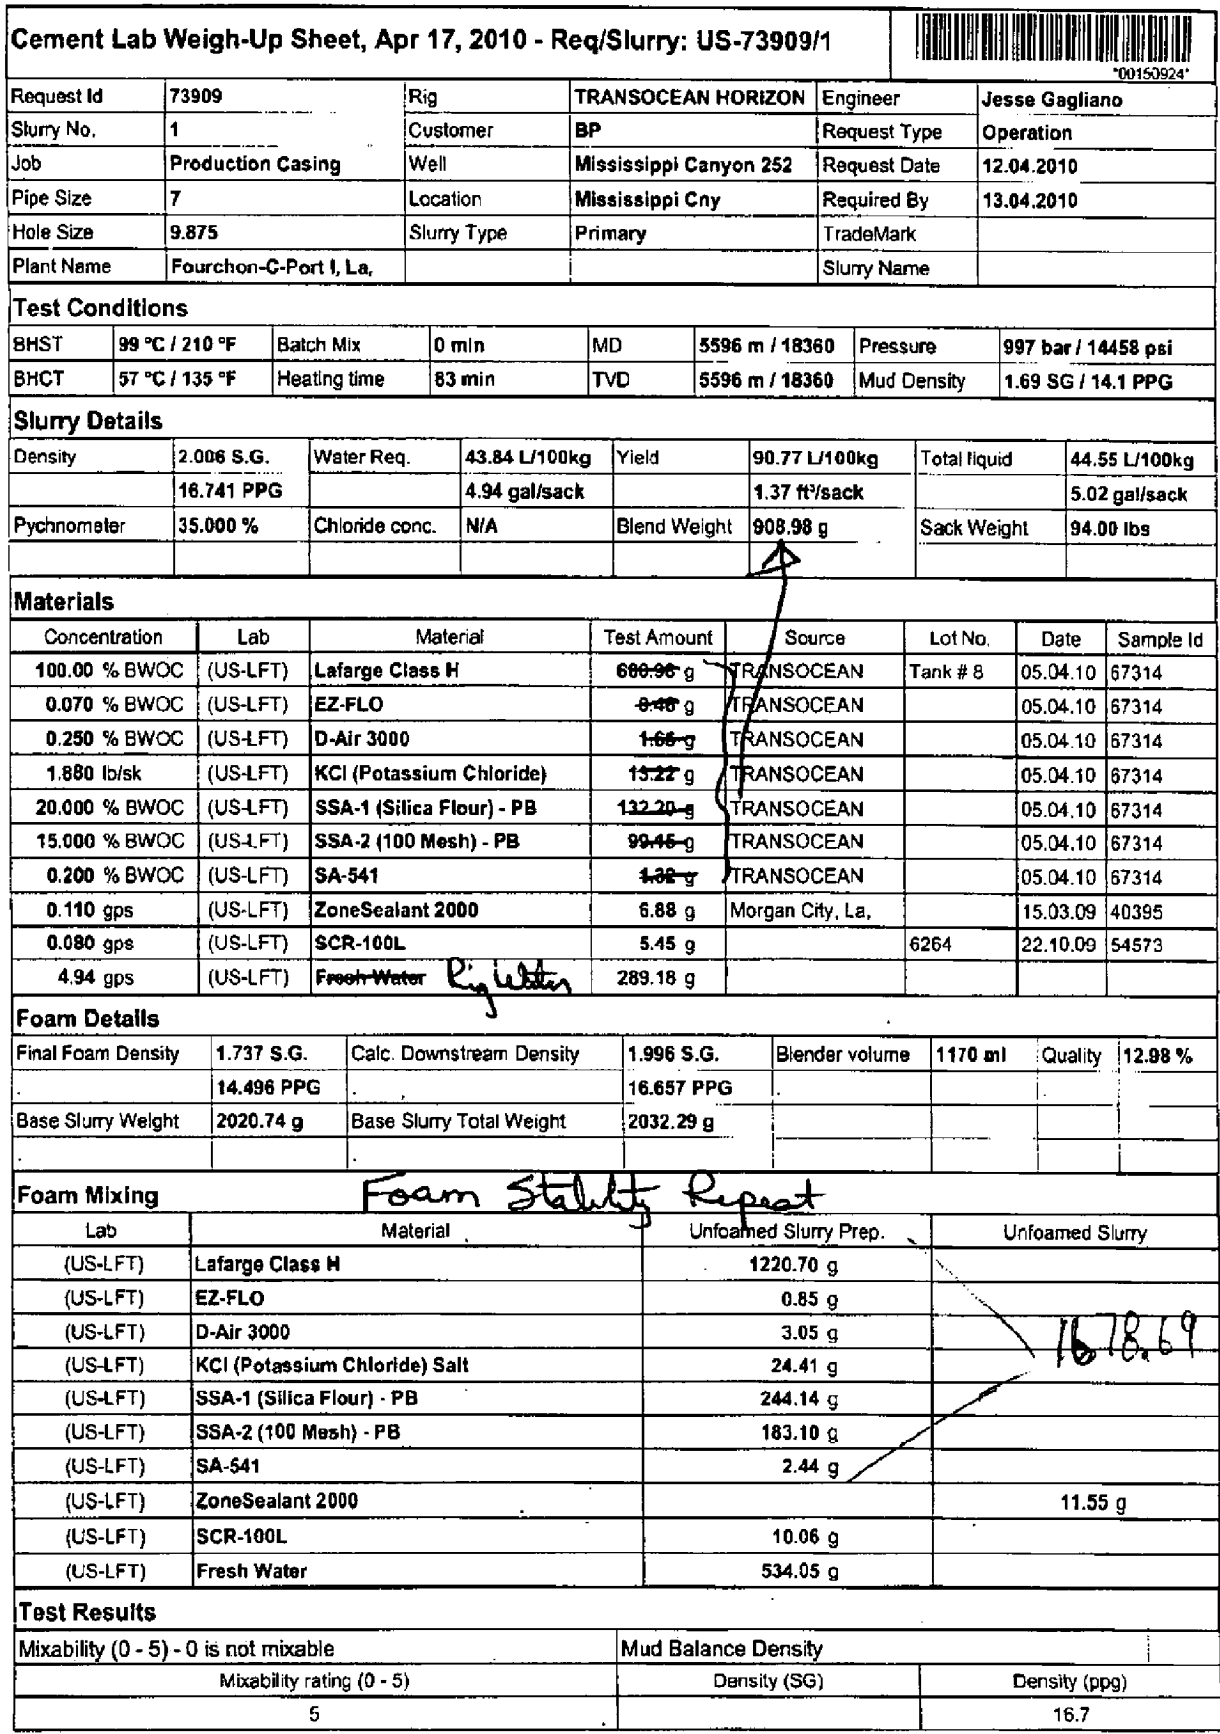 Cement Lab Weigh-Up Sheet, Apr 17, 2010 - Req/Slurry: US-73909/1
*00150924*
Request Id 73909 Rig TRANSOCEAN HORIZON Engineer Jesse Gagliano
Slurry No. 1 Customer BP Request Type Operation
Job Production Casing Well Mississippi Canyon 252 Request Date 12.04.2010
Pipe Size 7 Location Mississippi Cny Required By 13.04.2010
Hole Size 9.875 Slurry Type Primary TradeMark
Plant Name Fourchon-C-Port I, La, Slurry Name
Test Conditions
BHST 99 °C / 210 °F Batch Mix 0 min MD 5596 m / 18360 Pressure 997 bar / 14458 psi
BHCT 57 °C / 135 °F Heating time 83 min TVD 5596 m / 18360 Mud Density 1.69 SG / 14.1 PPG
Slurry Details
Density 2.006 S.G. Water Req. 43.84 L/100kg Yield 90.77 L/100kg Total liquid 44.55 L/100kg
16.741 PPG 4.94 gal/sack 1.37 ft³/sack 5.02 gal/sack
Pychnometer 35.000 % Chloride conc. N/A Blend Weight 908.98 g Sack Weight 94.00 lbs
Materials
Concentration Lab Material Test Amount Source Lot No. Date Sample Id
100.00 % BWOC (US-LFT) Lafarge Class H g TRANSOCEAN Tank # 8 05.04.10 67314
0.070 % BWOC (US-LFT) EZ-FLO 0.46 g TRANSOCEAN 05.04.10 67314
0.250 % BWOC (US-LFT) D-Air 3000 1.65 g TRANSOCEAN 05.04.10 67314
1.880 lb/sk (US-LFT) KCl (Potassium Chloride) 13.22 g TRANSOCEAN 05.04.10 67314
20.000 % BWOC (US-LFT) SSA-1 (Silica Flour) - PB 132.20 g TRANSOCEAN 05.04.10 67314
15.000 % BWOC (US-LFT) SSA-2 (100 Mesh) - PB 99.15 g TRANSOCEAN 05.04.10 67314
0.200 % BWOC (US-LFT) SA-541 1.32 g TRANSOCEAN 05.04.10 67314
0.110 gps (US-LFT) ZoneSealant 2000 6.88 g Morgan City, La, 15.03.09 40395
0.080 gps (US-LFT) SCR-100L 5.45 g 6264 22.10.09 54573
4.94 gps (US-LFT) Fresh Water Rig Water 289.18 g
Foam Details
Final Foam Density 1.737 S.G. Calc. Downstream Density 1.996 S.G. Blender volume 1170 ml Quality 12.98 %
14.496 PPG 16.657 PPG
Base Slurry Weight 2020.74 g Base Slurry Total Weight 2032.29 g
Foam Mixing Foam Stability Repeat
Lab Material Unfoamed Slurry Prep. Unfoamed Slurry
(US-LFT) Lafarge Class H 1220.70 g
(US-LFT) EZ-FLO 0.85 g
(US-LFT) D-Air 3000 3.05 g 1678.69
(US-LFT) KCl (Potassium Chloride) Salt 24.41 g
(US-LFT) SSA-1 (Silica Flour) - PB 244.14 g
(US-LFT) SSA-2 (100 Mesh) - PB 183.10 g
(US-LFT) SA-541 2.44 g
(US-LFT) ZoneSealant 2000 11.55 g
(US-LFT) SCR-100L 10.06 g
(US-LFT) Fresh Water 534.05 g
Test Results
Mixability (0 - 5) - 0 is not mixable Mud Balance Density
Mixability rating (0 - 5) Density (SG) Density (ppg)
5 16.7